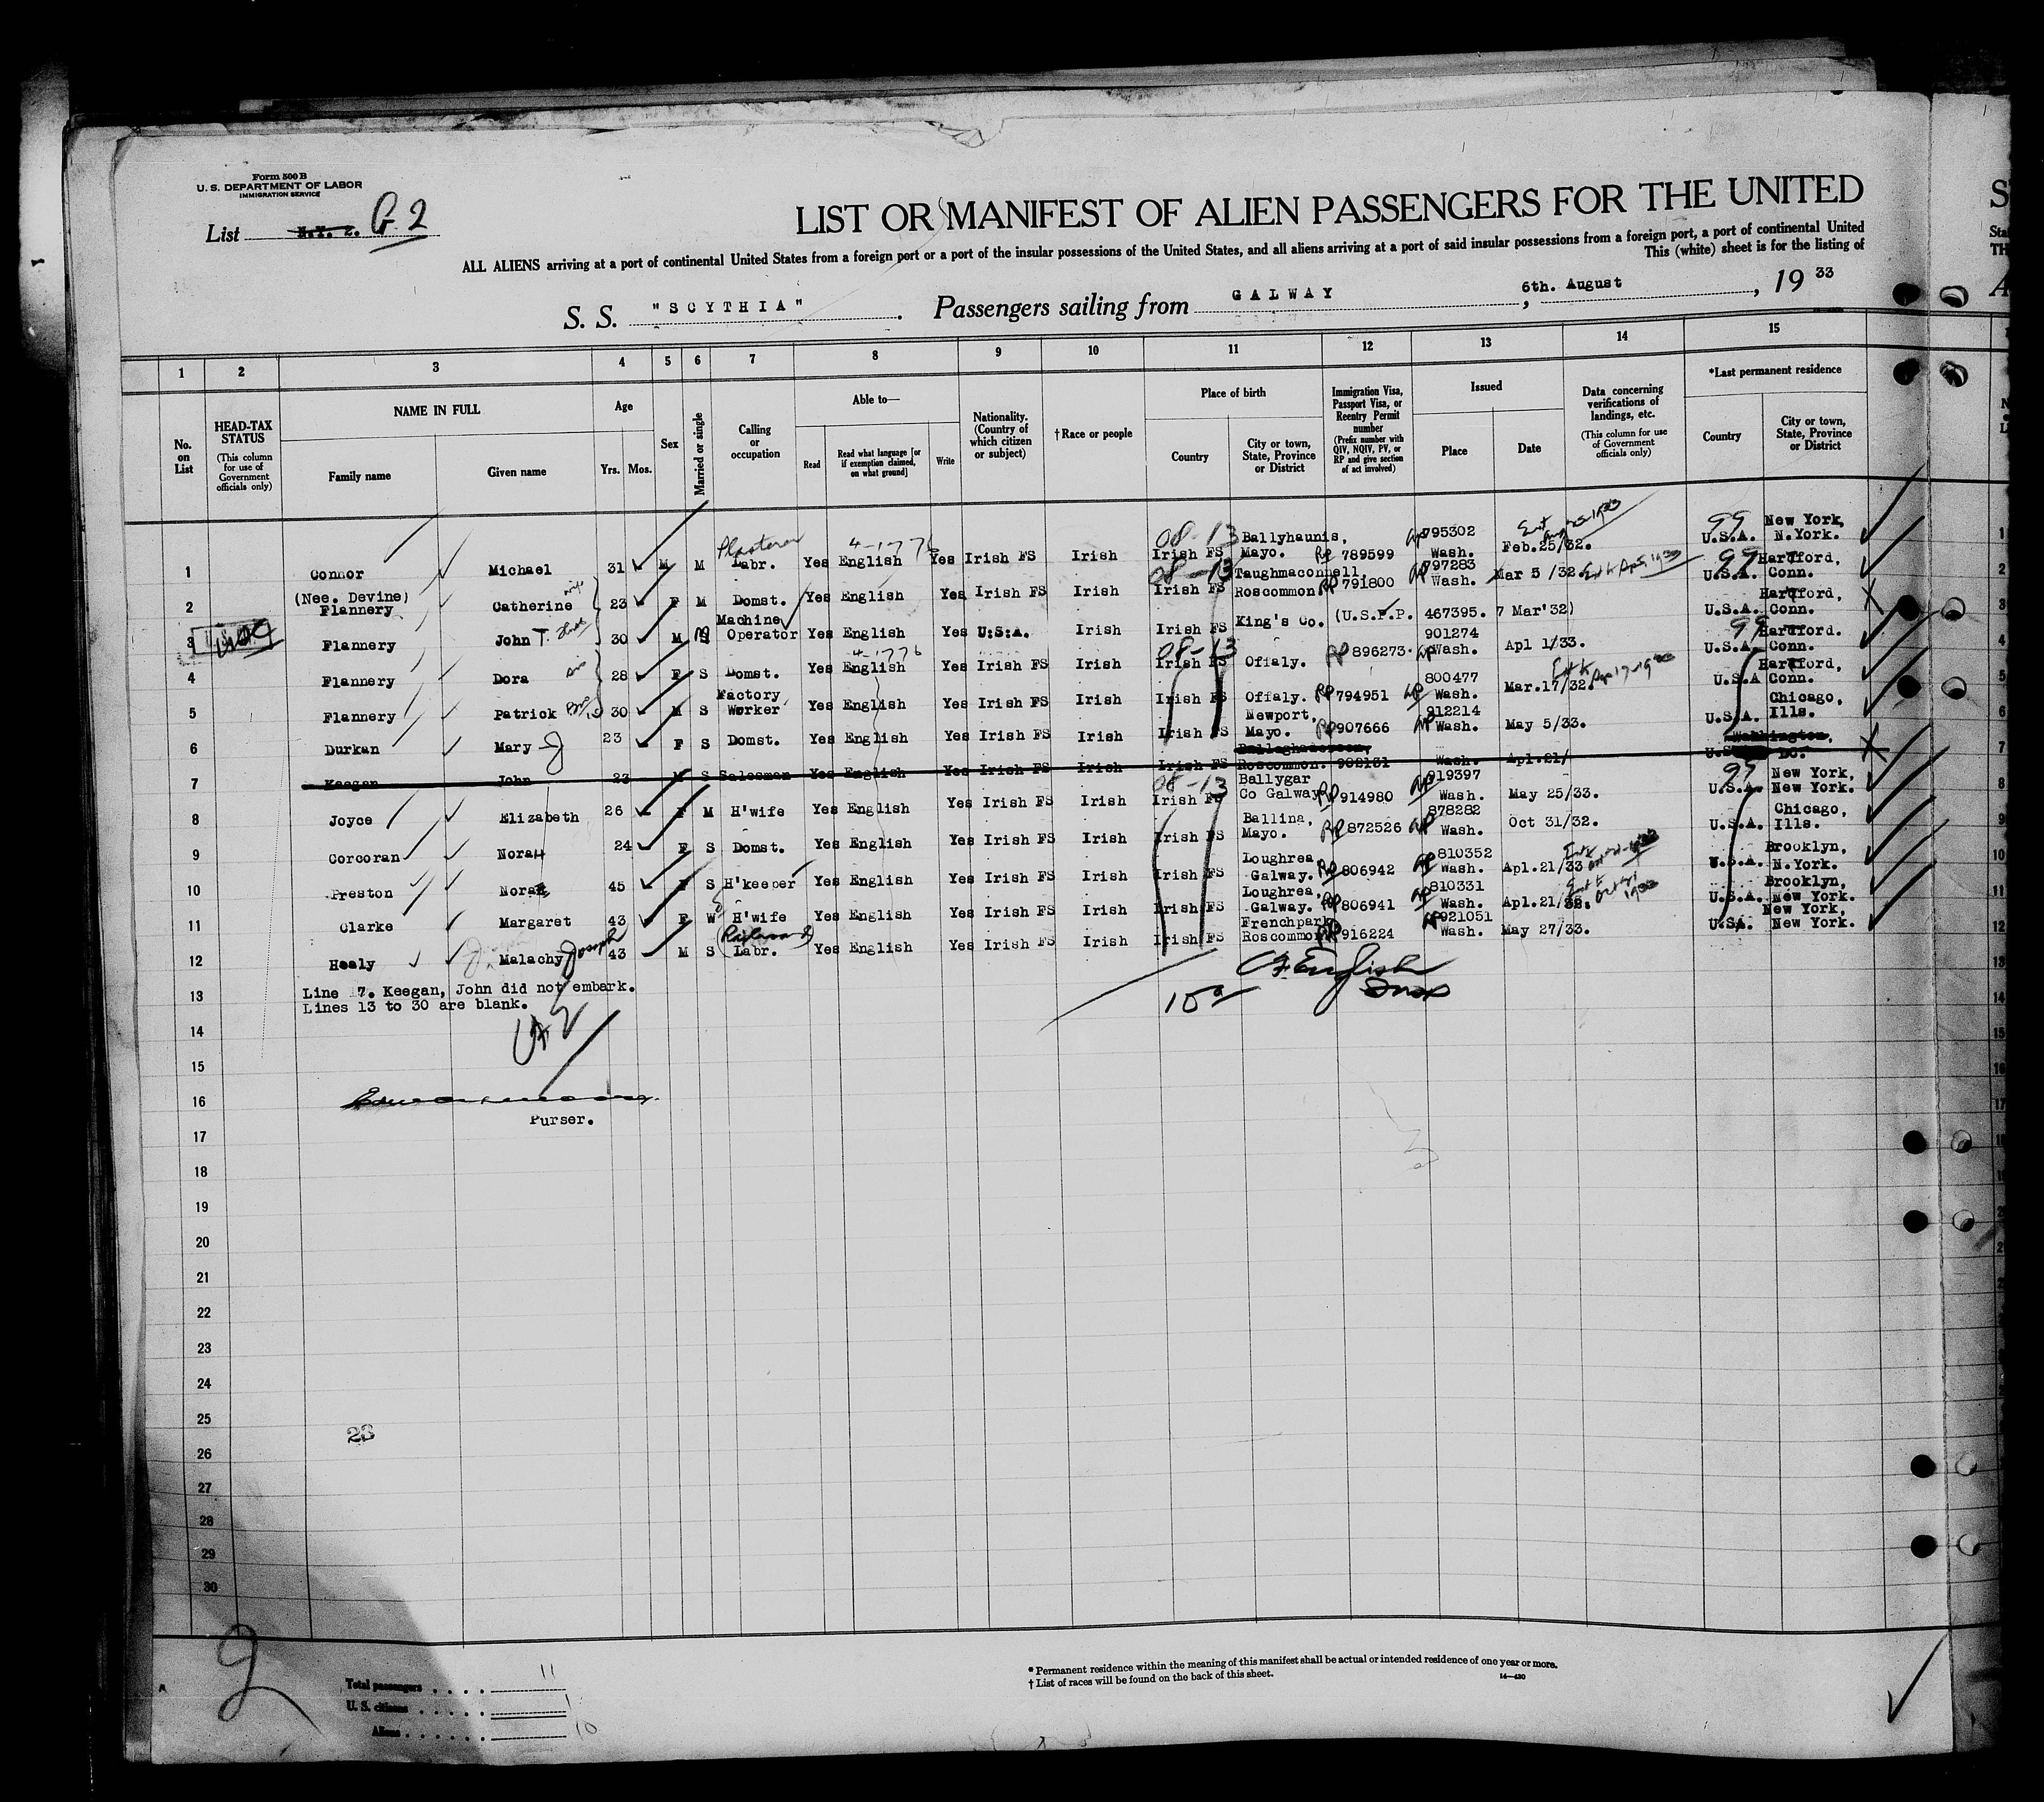 Form 500 B
U. S. DEPARTMENT OF LABOR
IMMIGRATION SERVICE
List N.Y. 2. G 2
LIST OR MANIFEST OF ALIEN PASSENGERS FOR THE UNITED
ALL ALIENS arriving at a port of continental United States from a foreign port or a port of the insular possessions of the United States, and all aliens arriving at a port of said insular possessions from a foreign port, a port of continental United
This (white) sheet is for the listing of
S. S. "SCYTHIA". Passengers sailing from GALWAY, 6th. August, 19 33
1 2 3 4 5 6 7 8 9 10 11 12 13 14 15
No. on List
HEAD-TAX STATUS (This column for use of Government officials only)
NAME IN FULL
Family name Given name
Age Yrs. Mos.
Sex
Married or single
Calling or occupation
Able to—
Read Read what language [or if exemption claimed, on what ground] Write
Nationality. (Country of which citizen or subject)
†Race or people
Place of birth
Country City or town, State, Province or District
Immigration Visa, Passport Visa, or Reentry Permit number (Prefix number with QIV, NQIV, PV, or RP and give section of act involved)
Issued
Place Date
Data concerning verifications of landings, etc. (This column for use of Government officials only)
*Last permanent residence
Country City or town, State, Province or District
1 Connor Michael 31 M M Plasterer Labr. Yes English 4-1776 Yes Irish FS Irish 08-13 Irish FS Ballyhaunis, Mayo. RP 789599 795302 Wash. Feb.25/32. 99 U.S.A. New York, N.York. 1
2 (Nee. Devine) Flannery Catherine wife 23 F M Domst. Yes English Yes Irish FS Irish 08-13 Irish FS Taughmaconnell, Roscommon RP 791800 797283 Wash. Mar 5 /32. 99 U.S.A. Hartford, Conn. 2
3 Flannery John T. 30 M S Machine Operator Yes English Yes U.S.A. Irish Irish FS King's Co. (U.S.P.P. 467395. 7 Mar'32) U.S.A. Hartford, Conn. 3
4 Flannery Dora 28 F S Domst. Yes English 4-1776 Yes Irish FS Irish 08-13 Irish FS Offaly. RP 896273 901274 Wash. Apl 1/33. 99 U.S.A. Hartford. Conn. 4
5 Flannery Patrick 30 M S Factory Worker Yes English Yes Irish FS Irish Irish FS Offaly. RP 794951 800477 Wash. Mar.17/32. U.S.A Hartford, Conn. 5
6 Durkan Mary J 23 F S Domst. Yes English Yes Irish FS Irish Irish FS Newport, Mayo. RP 907666 912214 Wash. May 5/33. U.S.A. Chicago, Ills. 6
7 Keegan John 23 M S Salesman Yes English Yes Irish FS Irish Irish FS Roscommon. 902131 Wash. Apl.21/ Washington, DC. 7
8 Joyce Elizabeth 26 F M H'wife Yes English Yes Irish FS Irish 08-13 Irish FS Ballygar Co Galway RP 914980 919397 Wash. May 25/33. 99 U.S.A. New York, New York. 8
9 Corcoran Nora 24 F S Domst. Yes English Yes Irish FS Irish Irish FS Ballina, Mayo. RP 872526 878282 Wash. Oct 31/32. U.S.A. Chicago, Ills. 9
10 Preston Nora 45 F S H'keeper Yes English Yes Irish FS Irish Irish FS Loughrea Galway. RP 806942 810352 Wash. Apl.21/33 U.S.A. Brooklyn, N.York. 10
11 Clarke Margaret 43 F W H'wife Yes English Yes Irish FS Irish Irish FS Loughrea, Galway. RP 806941 810331 Wash. Apl.21/32. U.S.A. Brooklyn, New York. 11
12 Healy Malachy Joseph 43 M S Railroad Labr. Yes English Yes Irish FS Irish Irish FS Frenchpark Roscommon RP 916224 921051 Wash. May 27/33. U.SA. New York, New York. 12
13 Line 7. Keegan, John did not embark.
Lines 13 to 30 are blank.
14
15
16
Purser.
17
18
19
20
21
22
23
24
25
23
26
27
28
29
30
2
Total passengers . . . . 11
U. S. citizens . . . . . 1
Aliens . . . . . . 10
* Permanent residence within the meaning of this manifest shall be actual or intended residence of one year or more.
† List of races will be found on the back of this sheet.
14—430